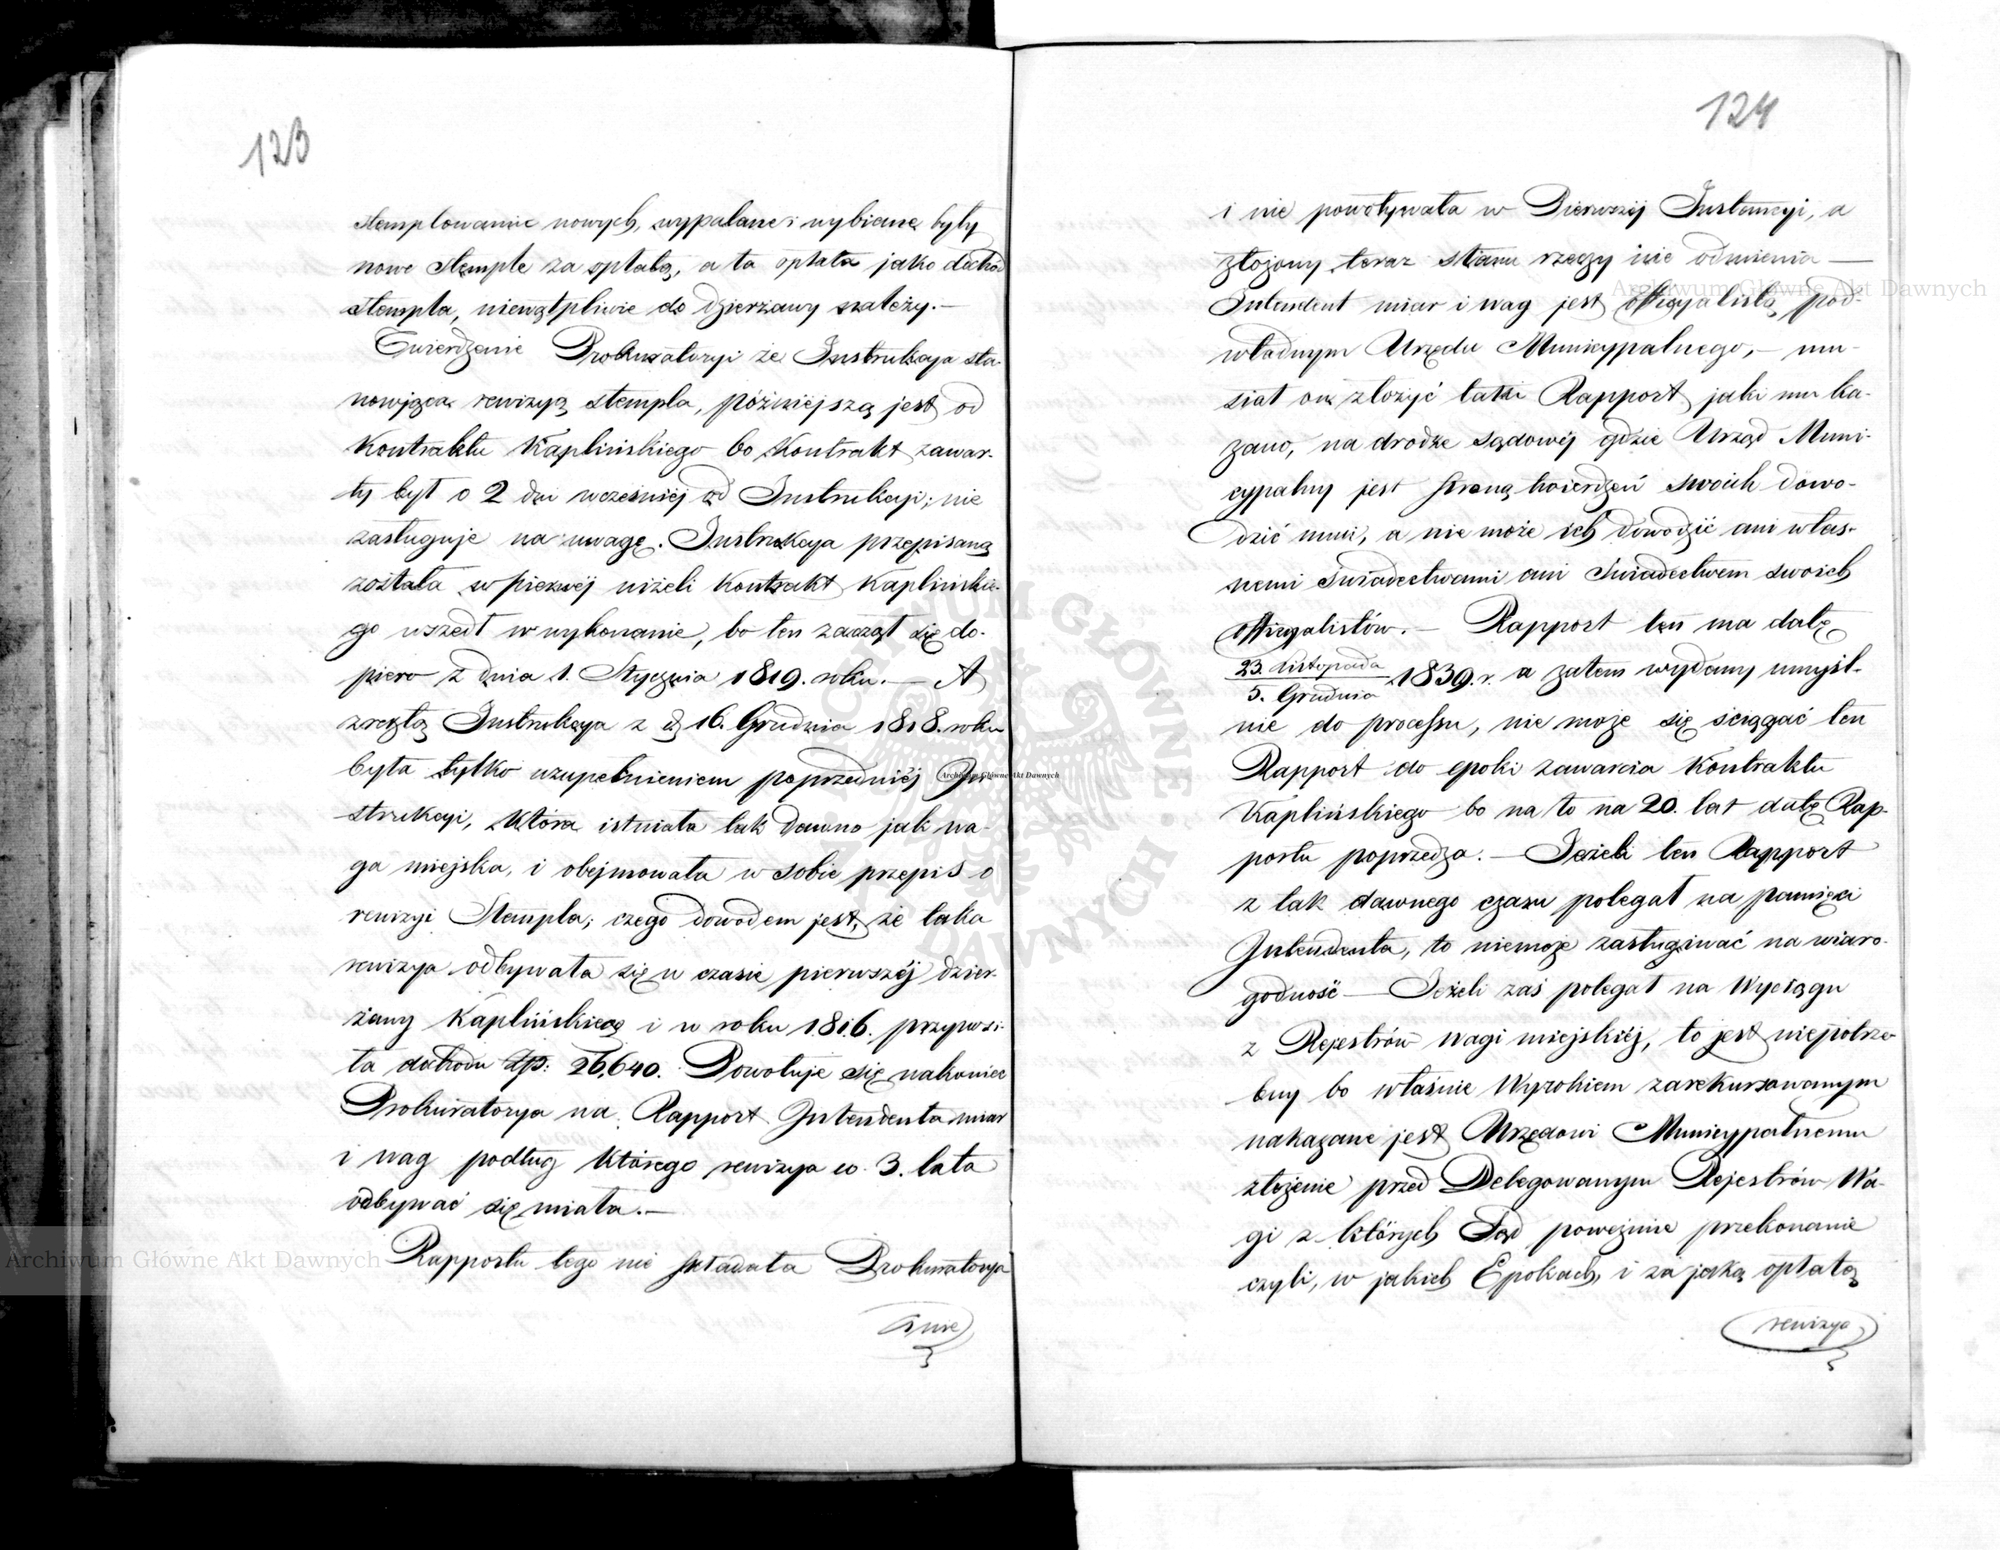 123
stemplowanie nowych, wypalane i wybiane były
nowe stemple za opłatą, a ta opłata jako dochód
stempla, niewątpliwie do dzierżawy należy. —
Twierdzenie Prokuratoryi że Instrukcya sta-
nowiąca rewizyą stempla, późniejszą jest od
Kontraktu Kaplińskiego bo Kontrakt zawar-
ty był o 2 dni wcześniéj od Instrukcyi; nie
zasługuje na uwagę. Instrukcya przepisaną
została w pierwéj niżeli Kontrakt Kaplińskie-
go wszedł w wykonanie, bo ten zaczął się do-
piero z dnia 1. Stycznia 1819. roku. — A
zresztą Instrukcya z d. 16. Grudnia 1818. roku
była tylko uzupełnieniem poprzedniéj In-
strukcyi, która istniała tak dawno jak wa-
ga miejska, i obejmowała w sobie przepis o
rewizyi Stempla; czego dowodem jest, że taka
rewizya odbywała się w czasie pierwszéj dzier-
żawy Kaplińskiego i w roku 1816. przynosi-
ła dochodu Zp: 26,640. Powołuje się nakoniec
Prokuratorya na Rapport Intendenta miar
i wag podług którego rewizya co 3. lata
odbywać się miała. —
Rapportu tego nie składała Prokuratorya
i nie
124
i nie powoływała w Pierwszéj Instancyi, a
złożony teraz stanu rzeczy nie odmienia —
Intendent miar i wag jest officyalistą pod-
władnym Urzędu Municypalnego, — mu-
siał on złożyć taki Rapport jaki mu ka-
zano, na drodze sądowéj gdzie Urząd Muni-
cypalny jest stroną twierdzeń swoich dowo-
dzić winni, a nie może ich dowodzić ani włas-
nemi świadectwami ani świadectwem swoich
officyalistów. — Rapport ten ma datę
23. Listopada
5. Grudnia 1839. r. a zatem wydany umyśl-
nie do processu, nie może się ściągać ten
Rapport do epoki zawarcia Kontraktu
Kaplińskiego bo na to na 20. lat datę Rap-
portu poprzedza. — Jeżeli ten Rapport
z tak dawnego czasu polegał na pamięci
Intendenta, to niemoże zasługiwać na wiaro-
godność — Jeżeli zaś polegał na Wyciągu
z Rejestrów Wagi miejskiéj, to jest niepotrze-
bny bo właśnie Wyrokiem zarekursowanym
nakazane jest Urzędowi Municypalnemu
złożenie przed Delegowanym Rejestrów Wa-
gi z których Sąd poweźmie przekonanie
czyli, w jakich Epokach, i za jaką opłatą
rewizya
Archiwum Główne Akt Dawnych
Archiwum Główne Akt Dawnych
Archiwum Główne Akt Dawnych
ARCHIWUM GŁÓWNE AKT DAWNYCH